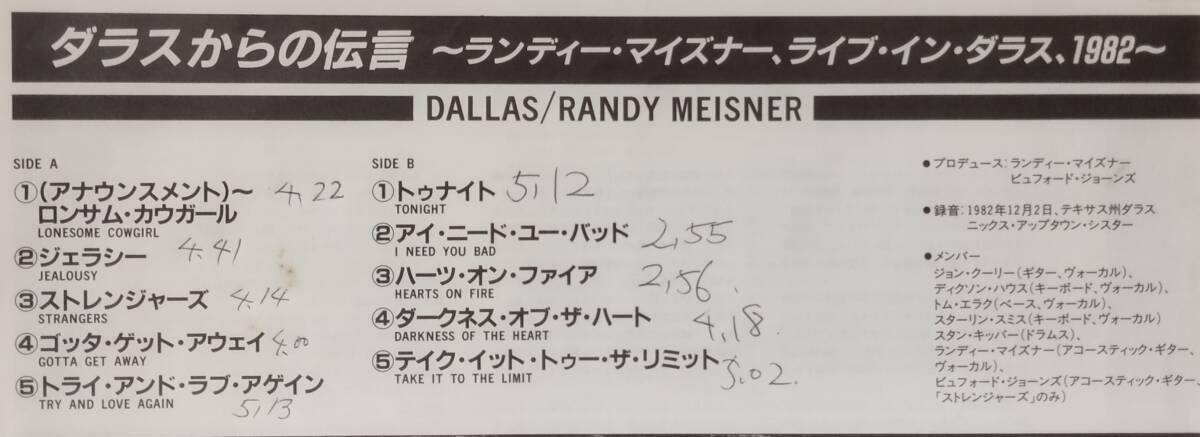 ダラスからの伝言 〜ランディー・マイズナー、ライブ・イン・ダラス、1982〜
DALLAS/RANDY MEISNER
SIDE A
①(アナウンスメント)〜 4,22
ロンサム・カウガール
LONESOME COWGIRL
②ジェラシー 4.41
JEALOUSY
③ストレンジャーズ 4.14
STRANGERS
④ゴッタ・ゲット・アウェイ 4.00
GOTTA GET AWAY
⑤トライ・アンド・ラブ・アゲイン
TRY AND LOVE AGAIN 5,13
SIDE B
①トゥナイト 5,12
TONIGHT
②アイ・ニード・ユー・バッド 2,55
I NEED YOU BAD
③ハーツ・オン・ファイア 2,56.
HEARTS ON FIRE
④ダークネス・オブ・ザ・ハート 4,18.
DARKNESS OF THE HEART
⑤テイク・イット・トゥー・ザ・リミット 5.02.
TAKE IT TO THE LIMIT
●プロデュース:ランディー・マイズナー
ビュフォード・ジョーンズ
●録音:1982年12月2日、テキサス州ダラス
ニックス・アップタウン・シスター
●メンバー
ジョン・クーリー(ギター、ヴォーカル)、
ディクソン・ハウス(キーボード、ヴォーカル)、
トム・エラク(ベース、ヴォーカル)、
スターリン・スミス(キーボード、ヴォーカル)
スタン・キッパー(ドラムス)、
ランディー・マイズナー(アコースティック・ギター、
ヴォーカル)、
ビュフォード・ジョーンズ(アコースティック・ギター、
「ストレンジャーズ」のみ)